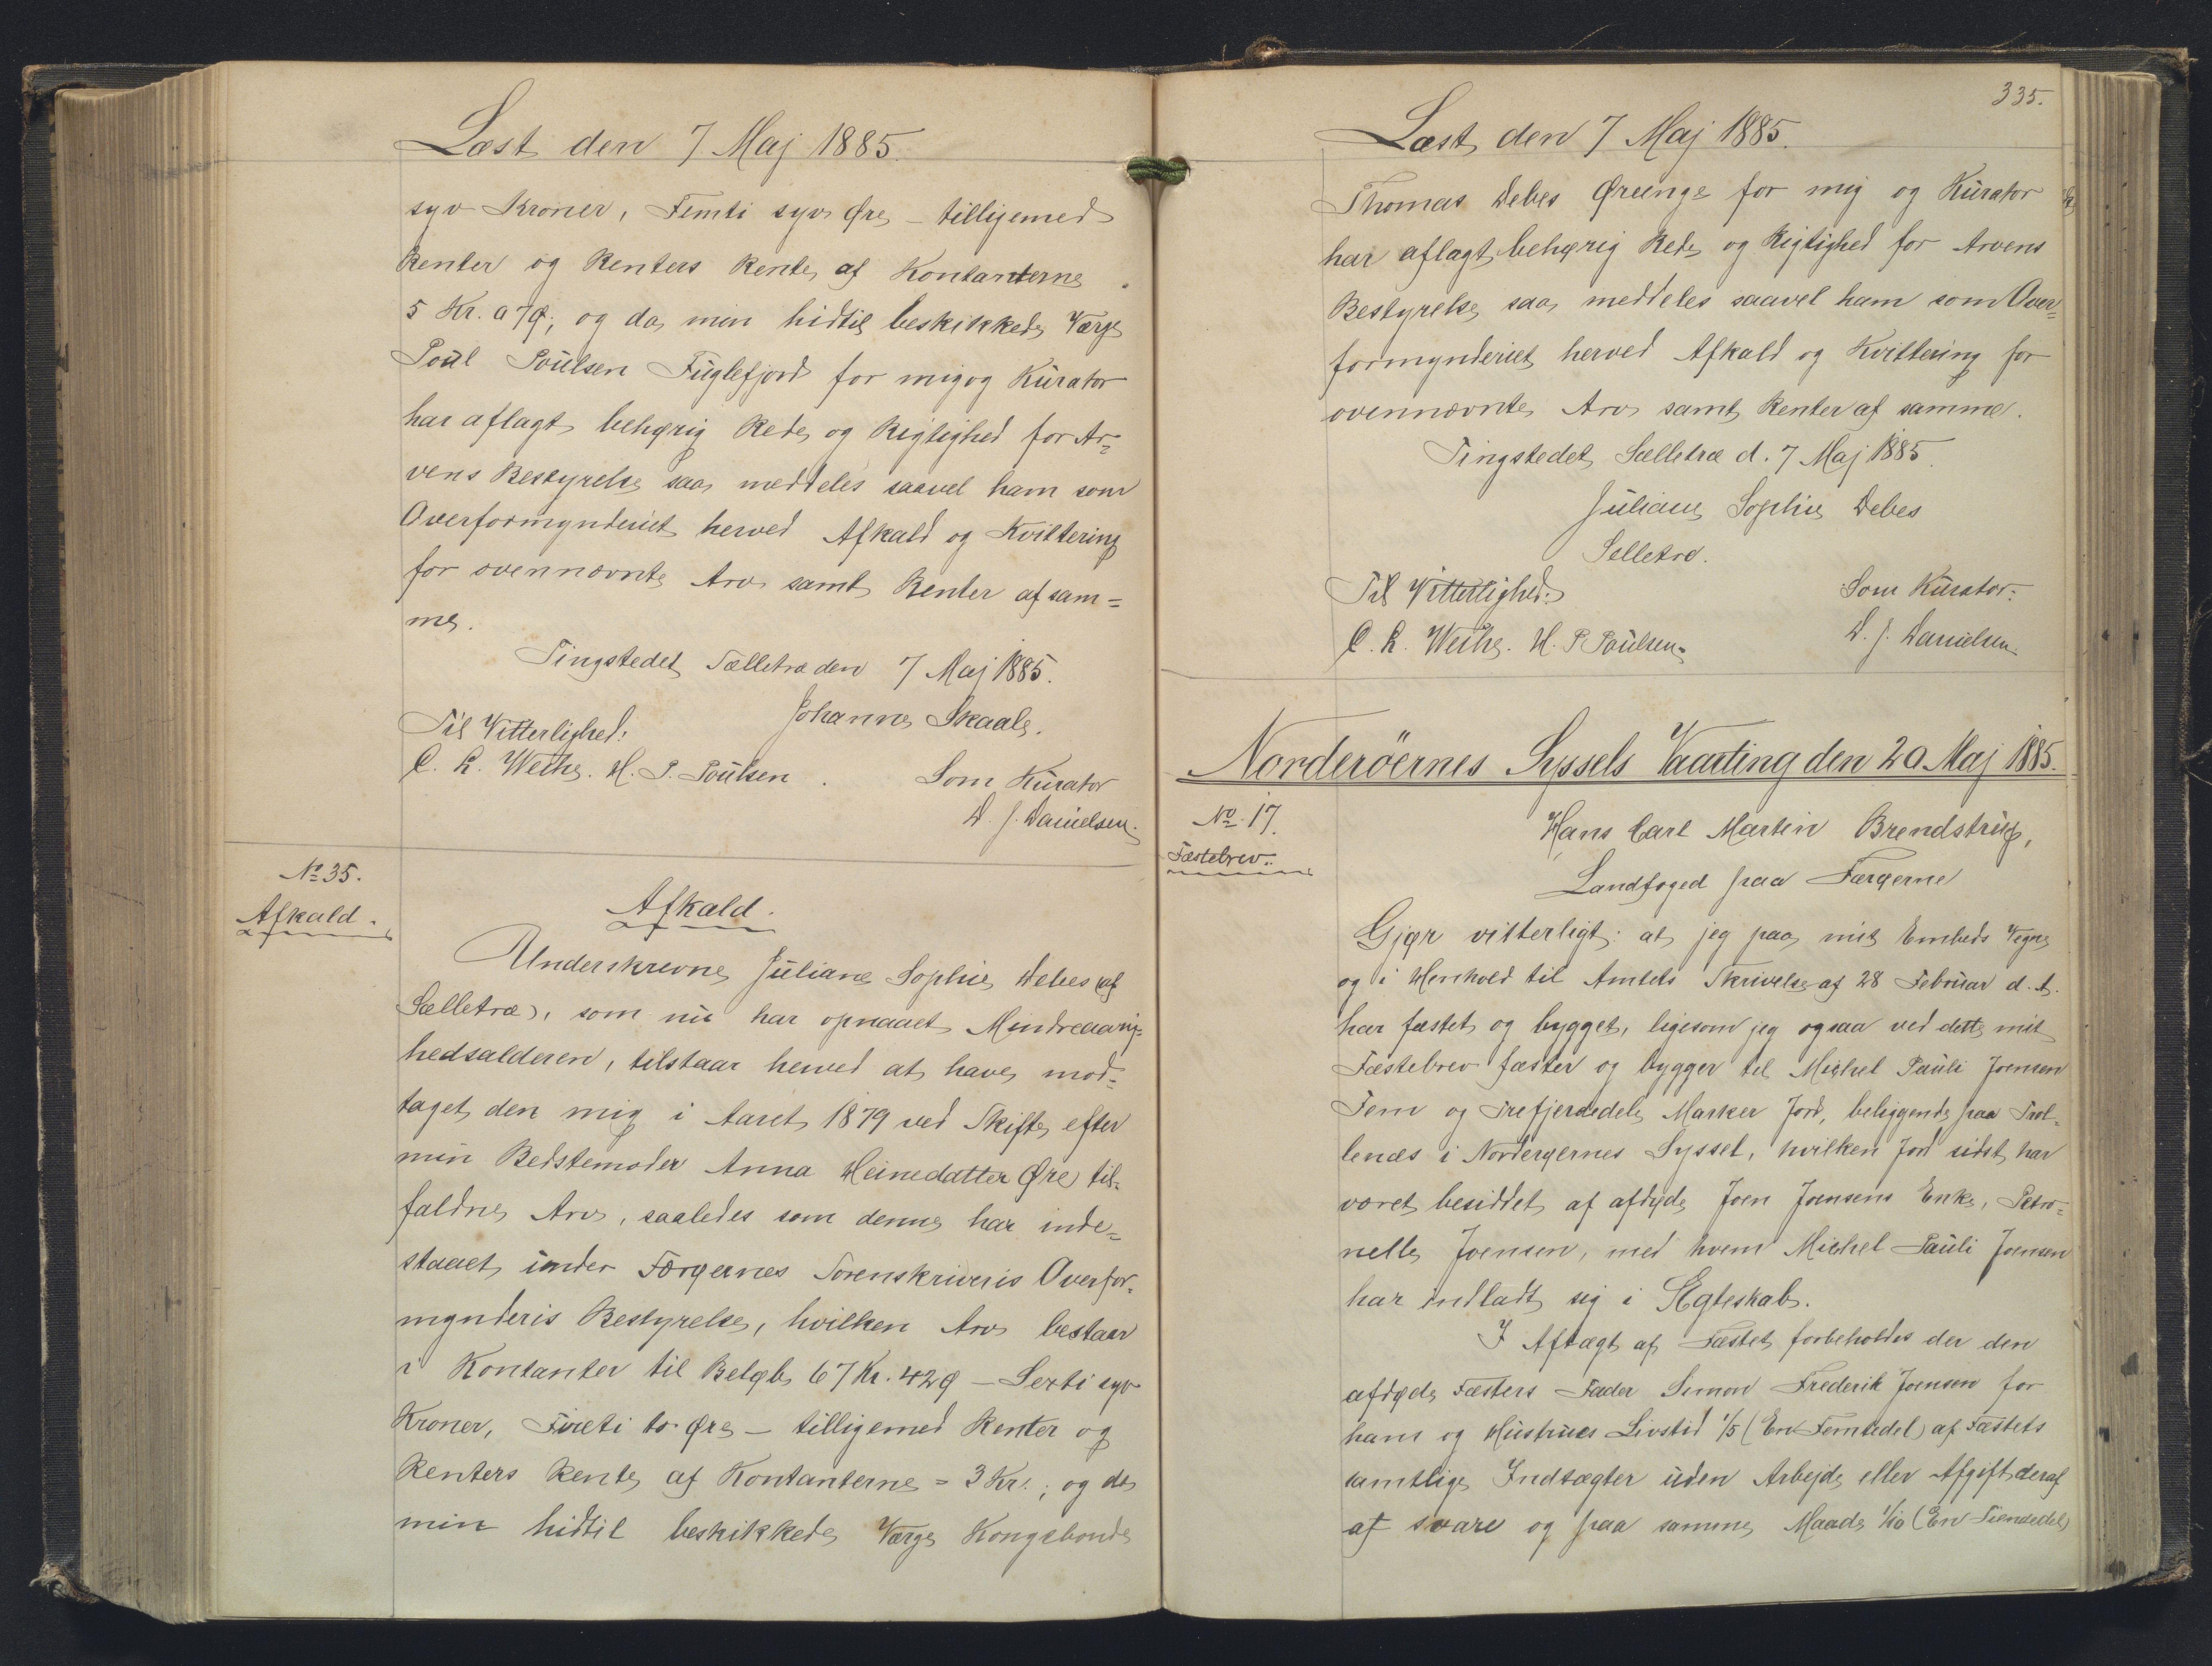 Læst den 7 Maj 1885.
syv Kroner, Femti syv Øre – tilligemed
Renter og Renters Rente af Kontanterne
5 Kr. 07ø; og da min hidtil beskikkede Værge
Poul Poulsen Fuglefjord for mig og Kurator
har aflagt behørig Rede og Rigtighed for Ar=
vens Bestyrelse saa meddeles saavel ham som
Overformynderiet herved Afkald og Kvittering
for ovennævnte Arv samt Renter af sam=
me.
Tingstedet Sælletræ den 7 Maj 1885.
Johanne Skaale.
Til Vitterlighed:
C. L. Weihe. H. P. Poulsen.
Som Kurator
D. J. Danielsen.
No 35.
Afkald.
Afkald.
Underskrevne Juliane Sophie Debes af
Sælletræ, som nu har opnaaet Mindreaarig=
hedsalderen, tilstaar herved at have mod=
taget den mig i Aaret 1879 ved Skifte efter
min Bedstemoder Anna Heinedatter Øre til=
faldne Arv, saaledes som denne har inde=
staaet under Færøernes Sorenskriveris Overfor=
mynderis Bestyrelse, hvilken Arv bestaar
i Kontanter til Beløb 67 Kr. 42ø – Sexti syv
Kroner, Fireti to Øre – tilligemed Renter og
Renters Rente af Kontanterne = 3 Kr.; og da
min hidtil beskikkede Værge Kongsbonde
335.
Læst den 7 Maj 1885.
Thomas Debes Ørenge for mig og Kurator
har aflagt behørig Rede og Rigtighed for Arvens
Bestyrelse, saa meddeles saavel ham som Over=
formynderiet herved Afkald og Kvittering for
ovennævnte Arv samt Renter af samme.
Tingstedet Sælletræ d. 7 Maj 1885.
Juliane Sophie Debes
Selletræ.
Til Vitterlighed:
C. L. Weihe. H. P. Poulsen.
Som Kurator:
D. J. Danielsen.
Norderöernes Syssels Vaarting den 20 Maj 1885.
No. 17.
Fæstebrev.
Hans Carl Martin Brendstrup,
Landfoged paa Færøerne
Gjør vitterligt: at jeg paa mit Embeds Vegne
og i Henhold til Amtets Skrivelse af 28 Februar d. A.
har fæstet og bygget, ligesom jeg ogsaa ved dette mit
Fæstebrev fæster og bygger til Michel Pauli Joensen
Fem og Trefjerdedele Marker Jord, beliggende paa Trol=
lenæs i Norderøernes Syssel, hvilken Jord sidst har
været besiddet af afdøde Joen Joensens Enke, Petro=
nelle Joensen, med hvem Michel Pauli Joensen
har indladt sig i Ægteskab.
I Aftægt af Fæstet forbeholdes der den
afdøde Fæsters Fader Simon Frederik Joensen for
ham og Hustrues Livstid 1/5 (En Femtedel) af Fæstets
samtlige Indtægter uden Arbejde eller Afgift deraf
at svare og paa samme Maade 1/10 (En Tiendedel)